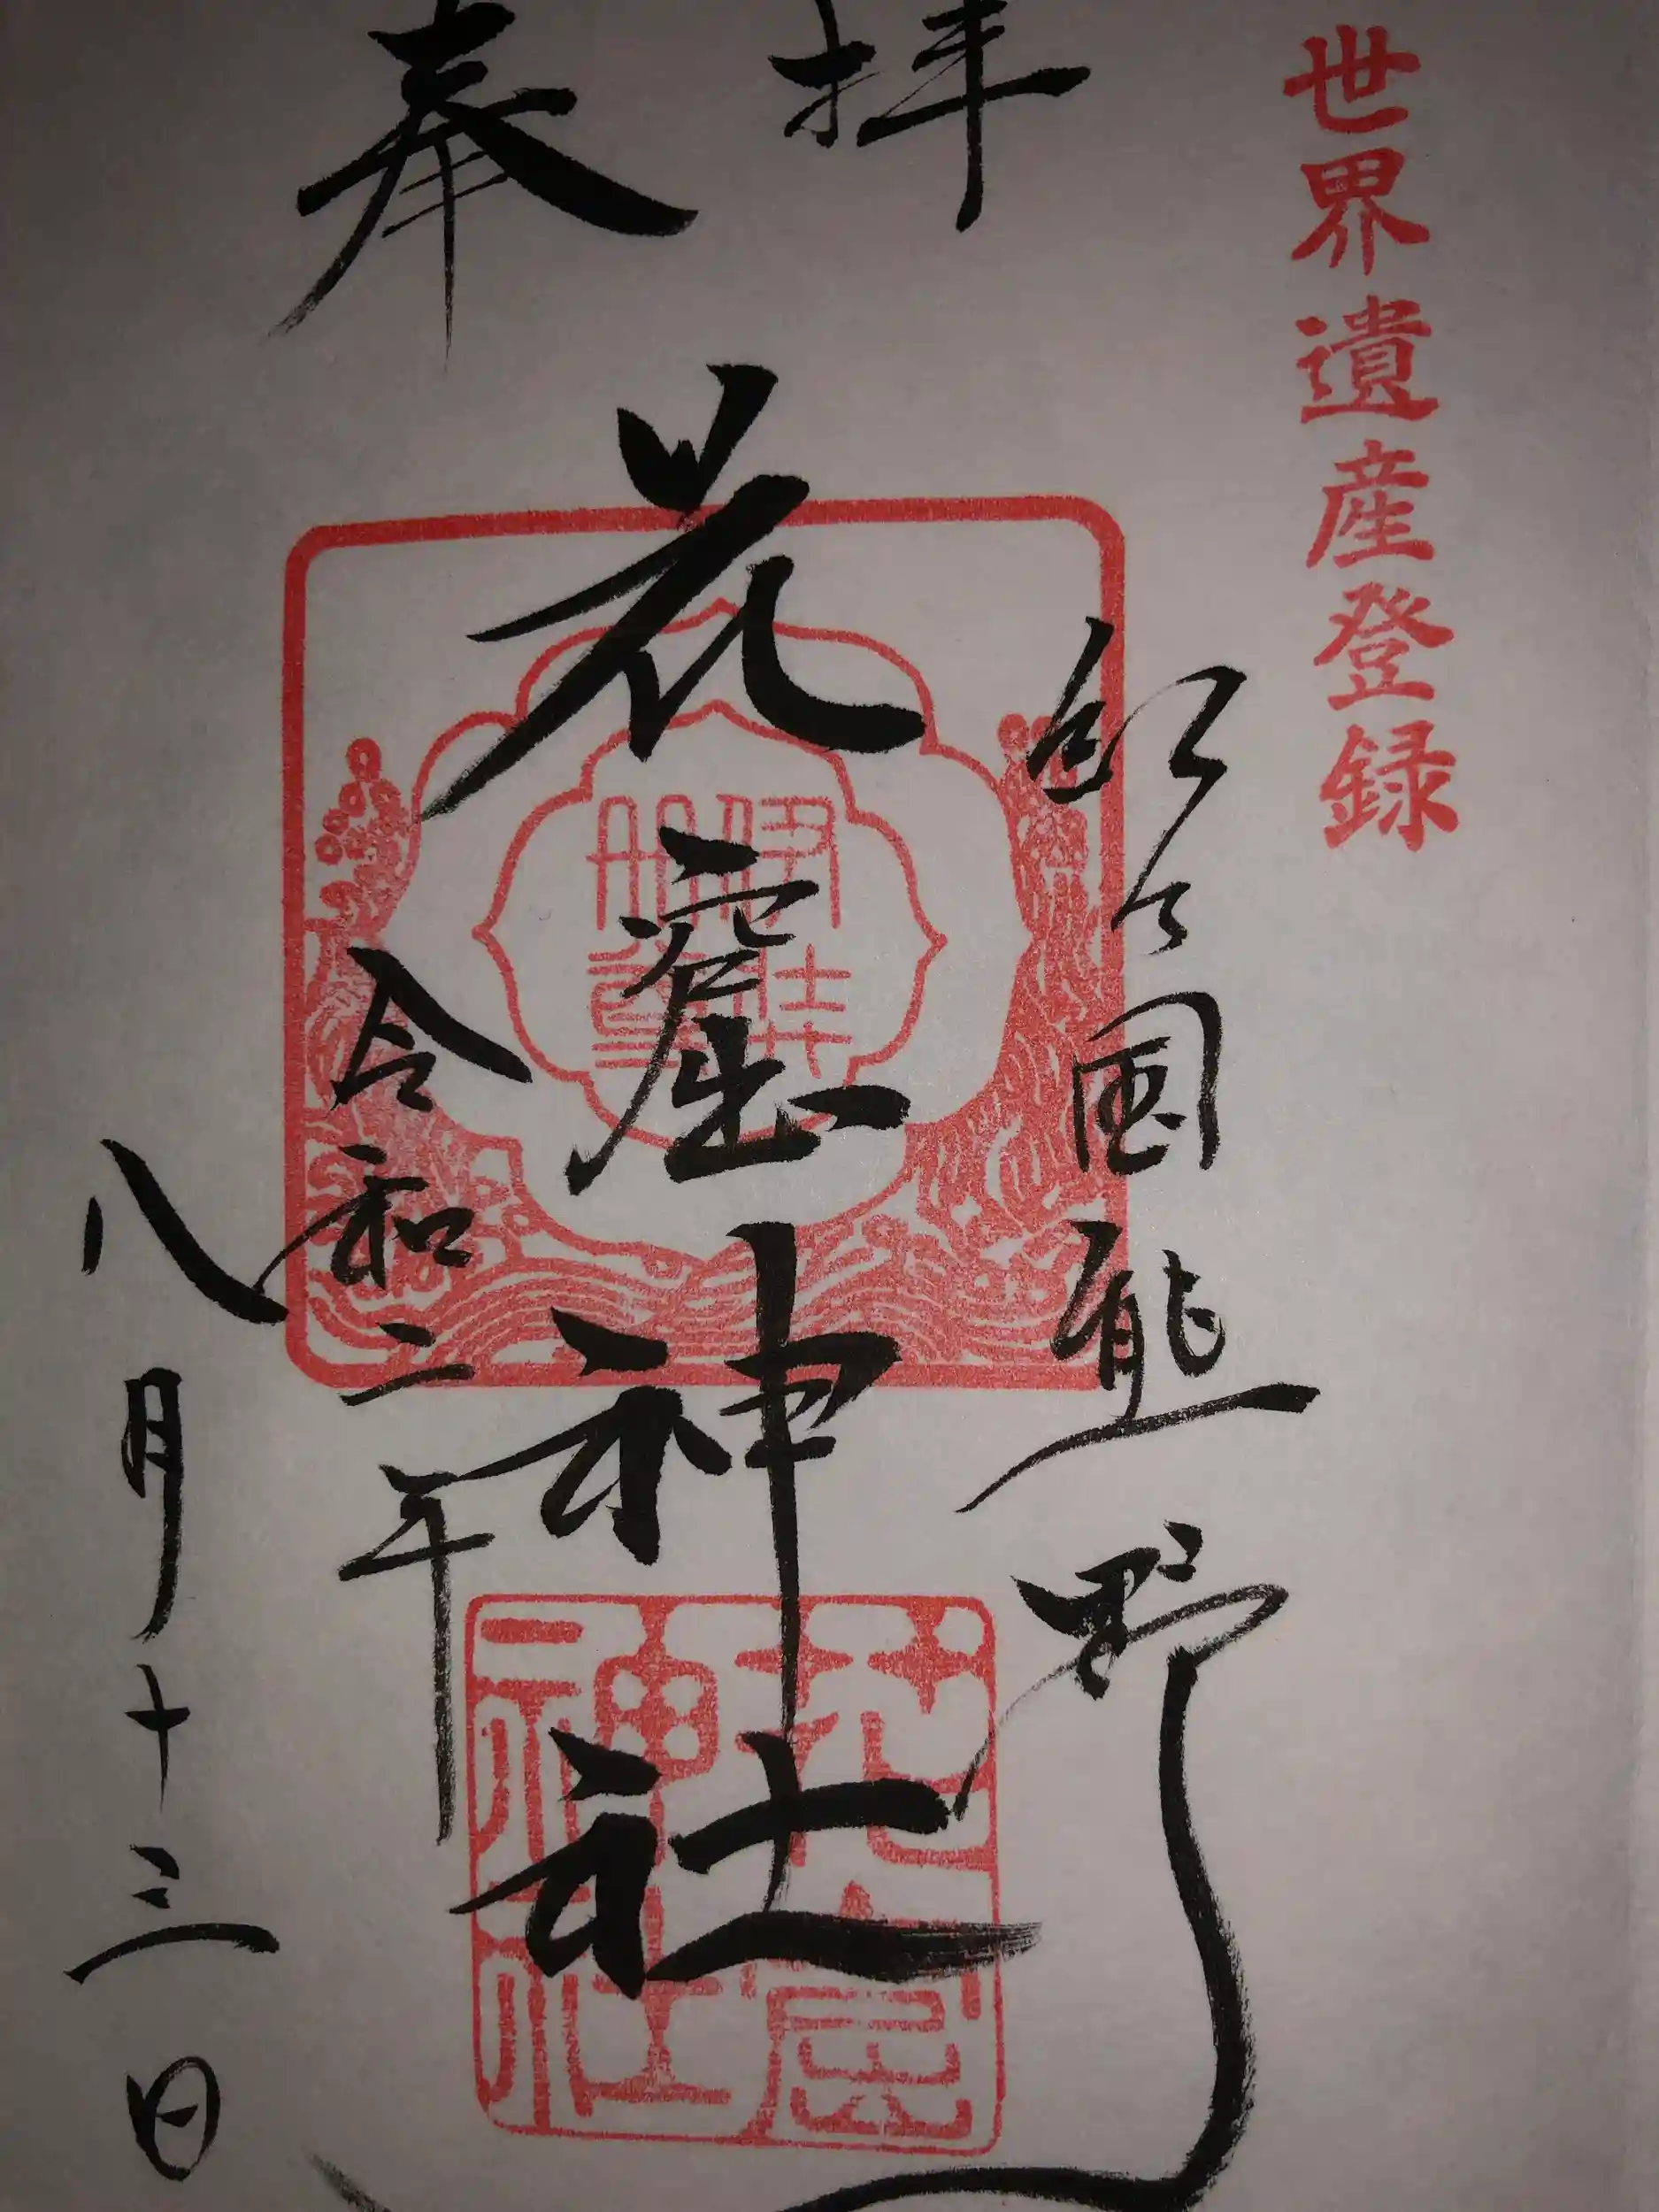 世界遺産登録
奉拝
紀之国熊野
花窟神社
令和二年
八月十三日
伊弉
冊尊
花窟
神社